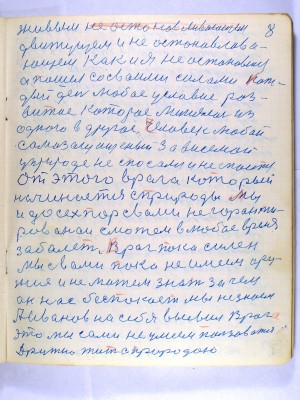 живым не останавливающем 8
двигущем и не останавлова
ющем Как и я не остановлю
а пошел со своими силами
дый ден любое условие роз
витае которое менялас из
одного в другое Человек любой
самозащищений зависимой
у природе не спосали и не спасает
От этого врага который
начинается с природы Мы
и до сех пор с вами не горонти
рованои сможем в любае время
заболет. Враг пока силен
Мы с вами пока не имеем ору
жия и не можем знат зачем
он нас беспокоет Мы не знаем
Иванов на себя выевил Врага
это мы сами не умеем ползоватся
Дружно жит с природою